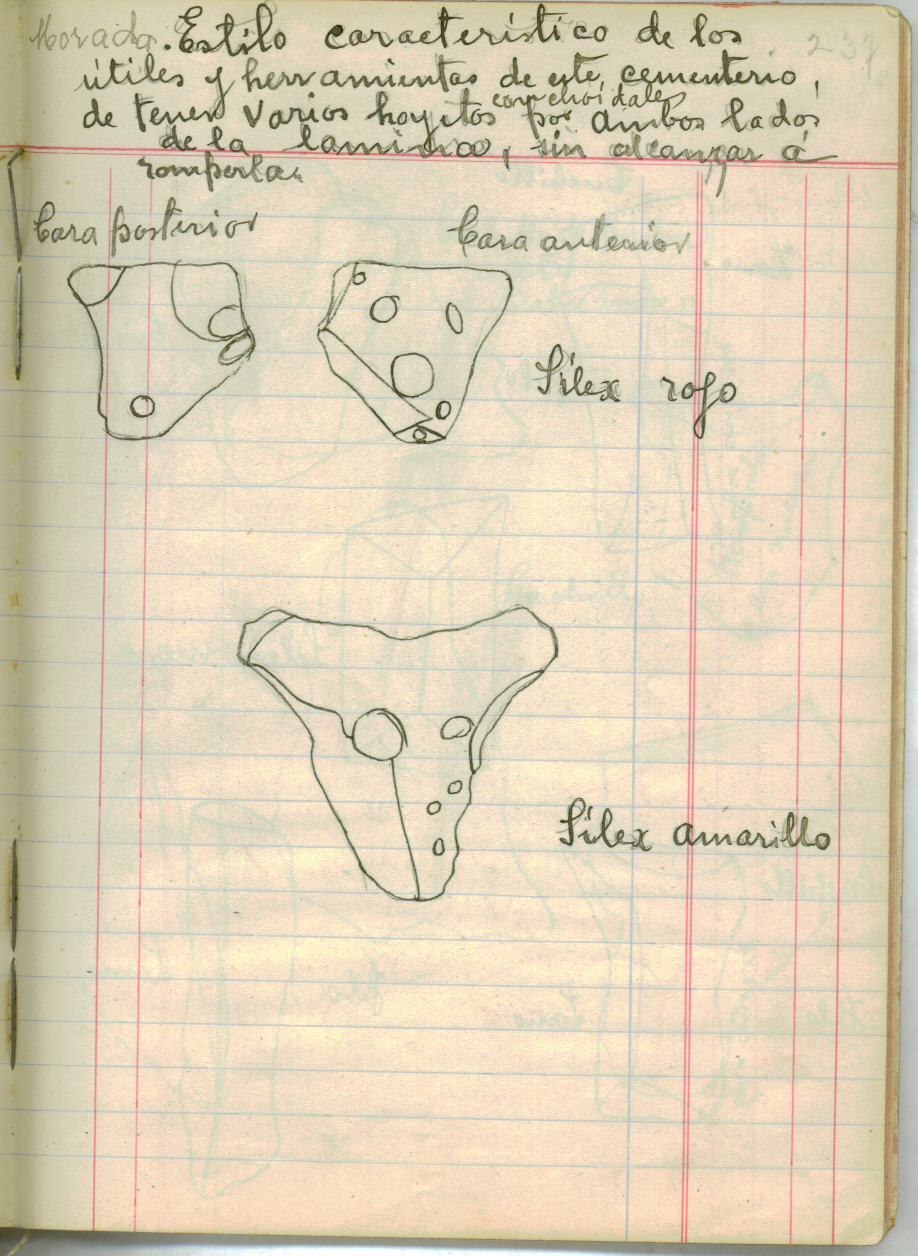 Morada. Estilo característico de los 237
útiles y herramientas de este cementerio,
conchoidales
de tener varios hoyitos por ambos lados
de la lamina, sin alcanzar á
romperla.
Cara posterior Cara anterior
Sílex rojo
Sílex amarillo